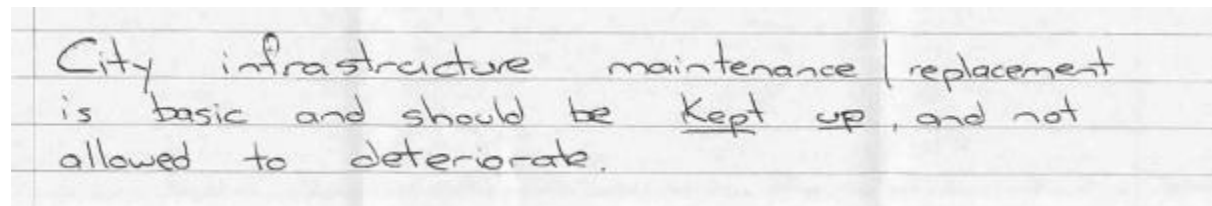 City infrastructure maintenance/replacement
is basic and should be Kept up, and not
allowed to deteriorate.